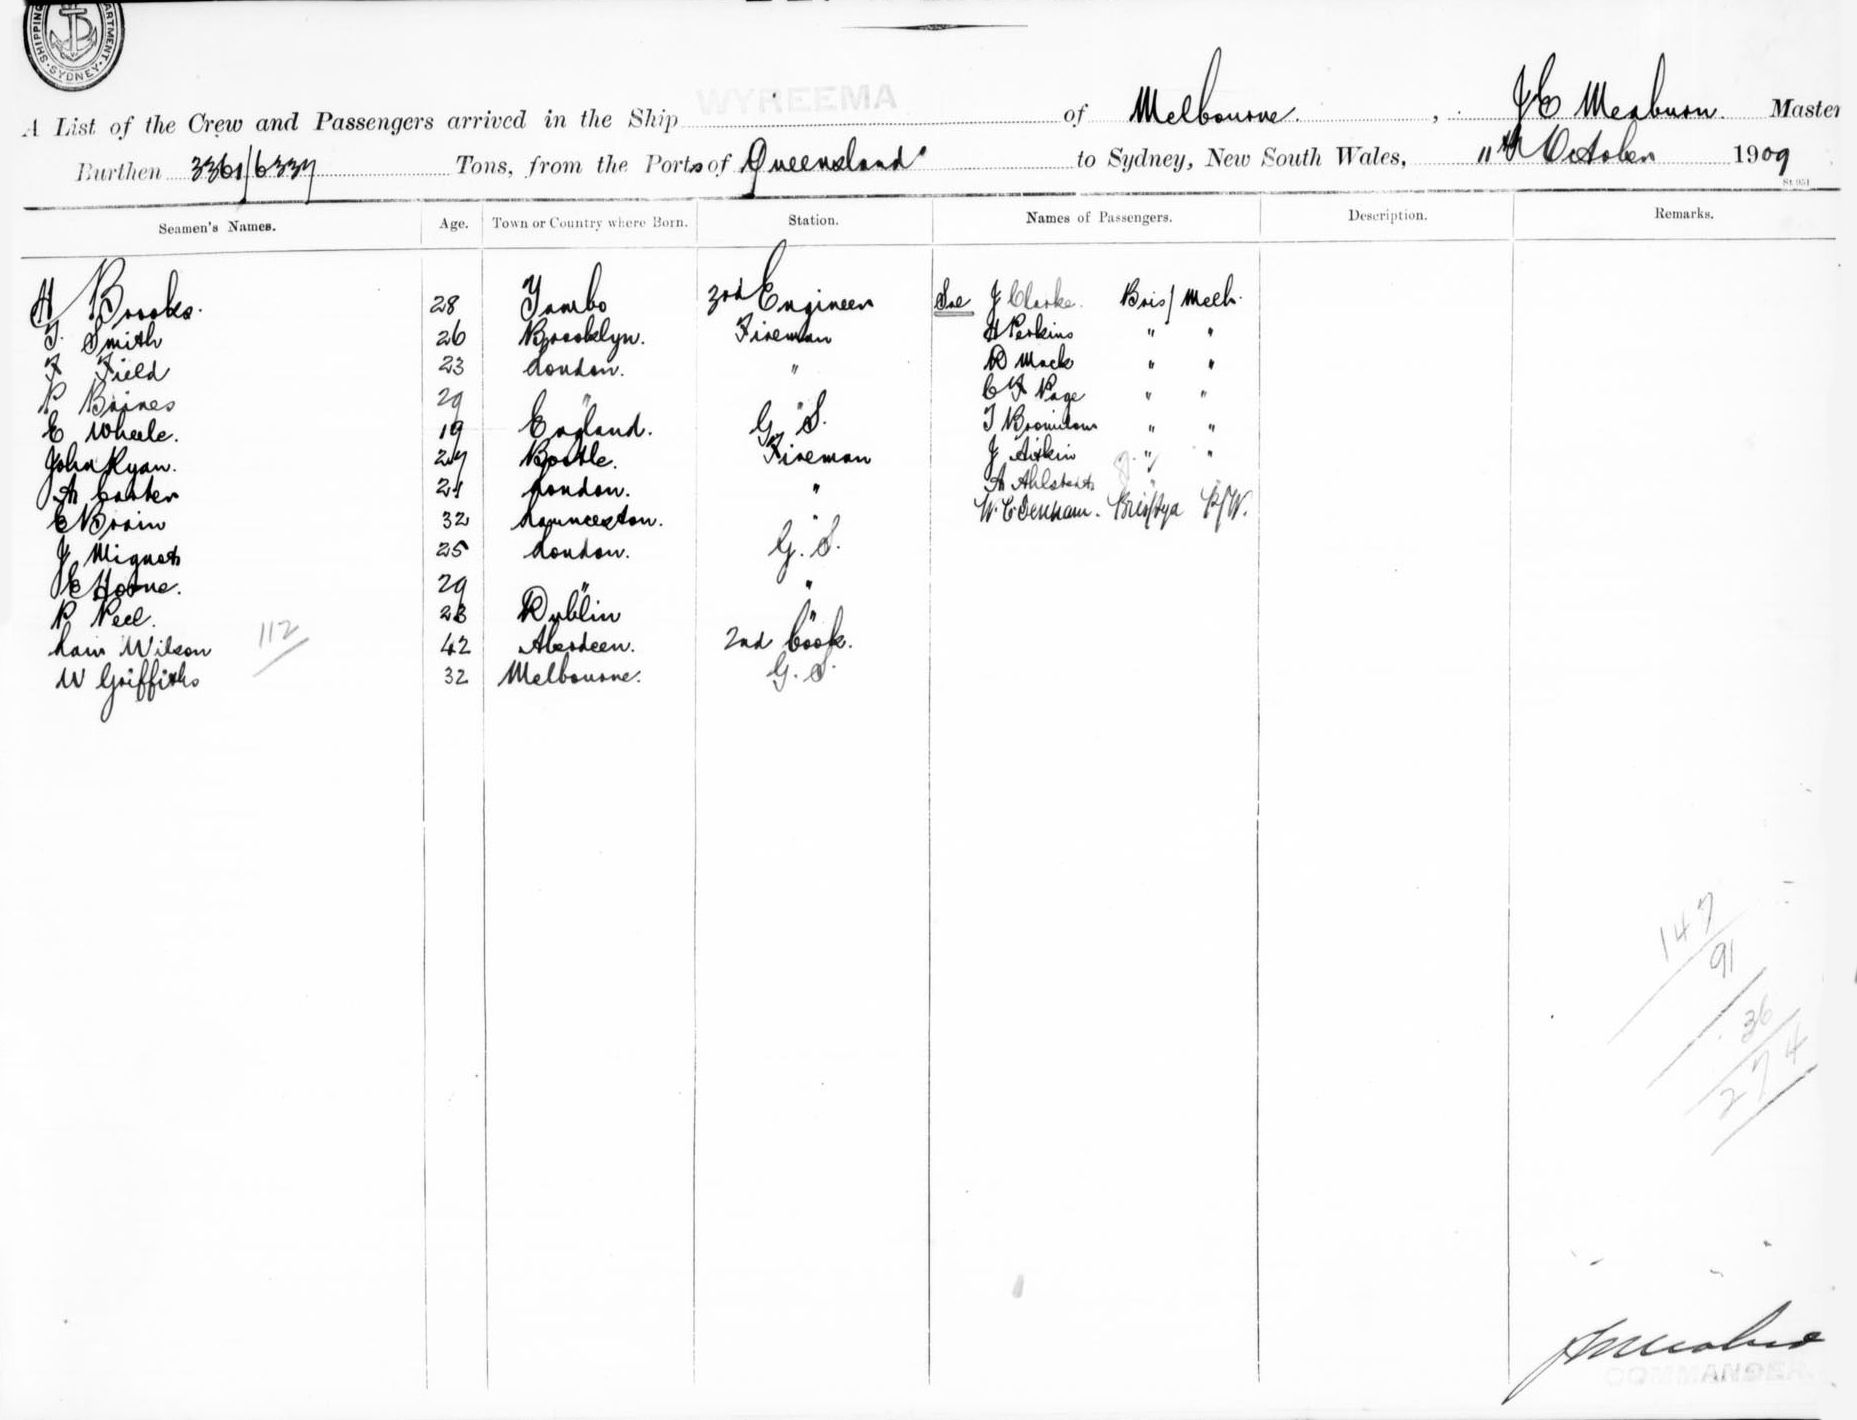 SHIPPING DEPARTMENT. SYDNEY.
A List of the Crew and Passengers arrived in the Ship WYREEMA of Melbourne. , J E Meaburn. Master
Burthen 3361/6337 Tons, from the Ports of Queensland to Sydney, New South Wales, 11th October 1909
St. 951
Seamen's Names. Age. Town or Country where Born. Station. Names of Passengers. Description. Remarks.
H Brooks. 28 Tambo 3rd Engineer Sal J Clarke. Bris/ Melb.
T. Smith 26 Brooklyn. Fireman H Perkins " "
F Field 23 London. " D Mack " "
P Baines 29 " " C F Page " "
E Wheele. 19 England. G. S. T Bromilow " "
John Ryan. 27 Bootle. Fireman J Aitkin " "
A Carter 21 London. " A Ahlstedt " "
E Brain 32 Launceston. " W. C Denham. Bris/Sya R/W.
J Mignot 25 London. G. S.
E Horne. 29 " "
P Peel. 23 Dublin "
Lain Wilson 112 42 Aberdeen. 2nd Cook.
W Griffiths 32 Melbourne. G. S.
147
91
36
274
COMMANDER.